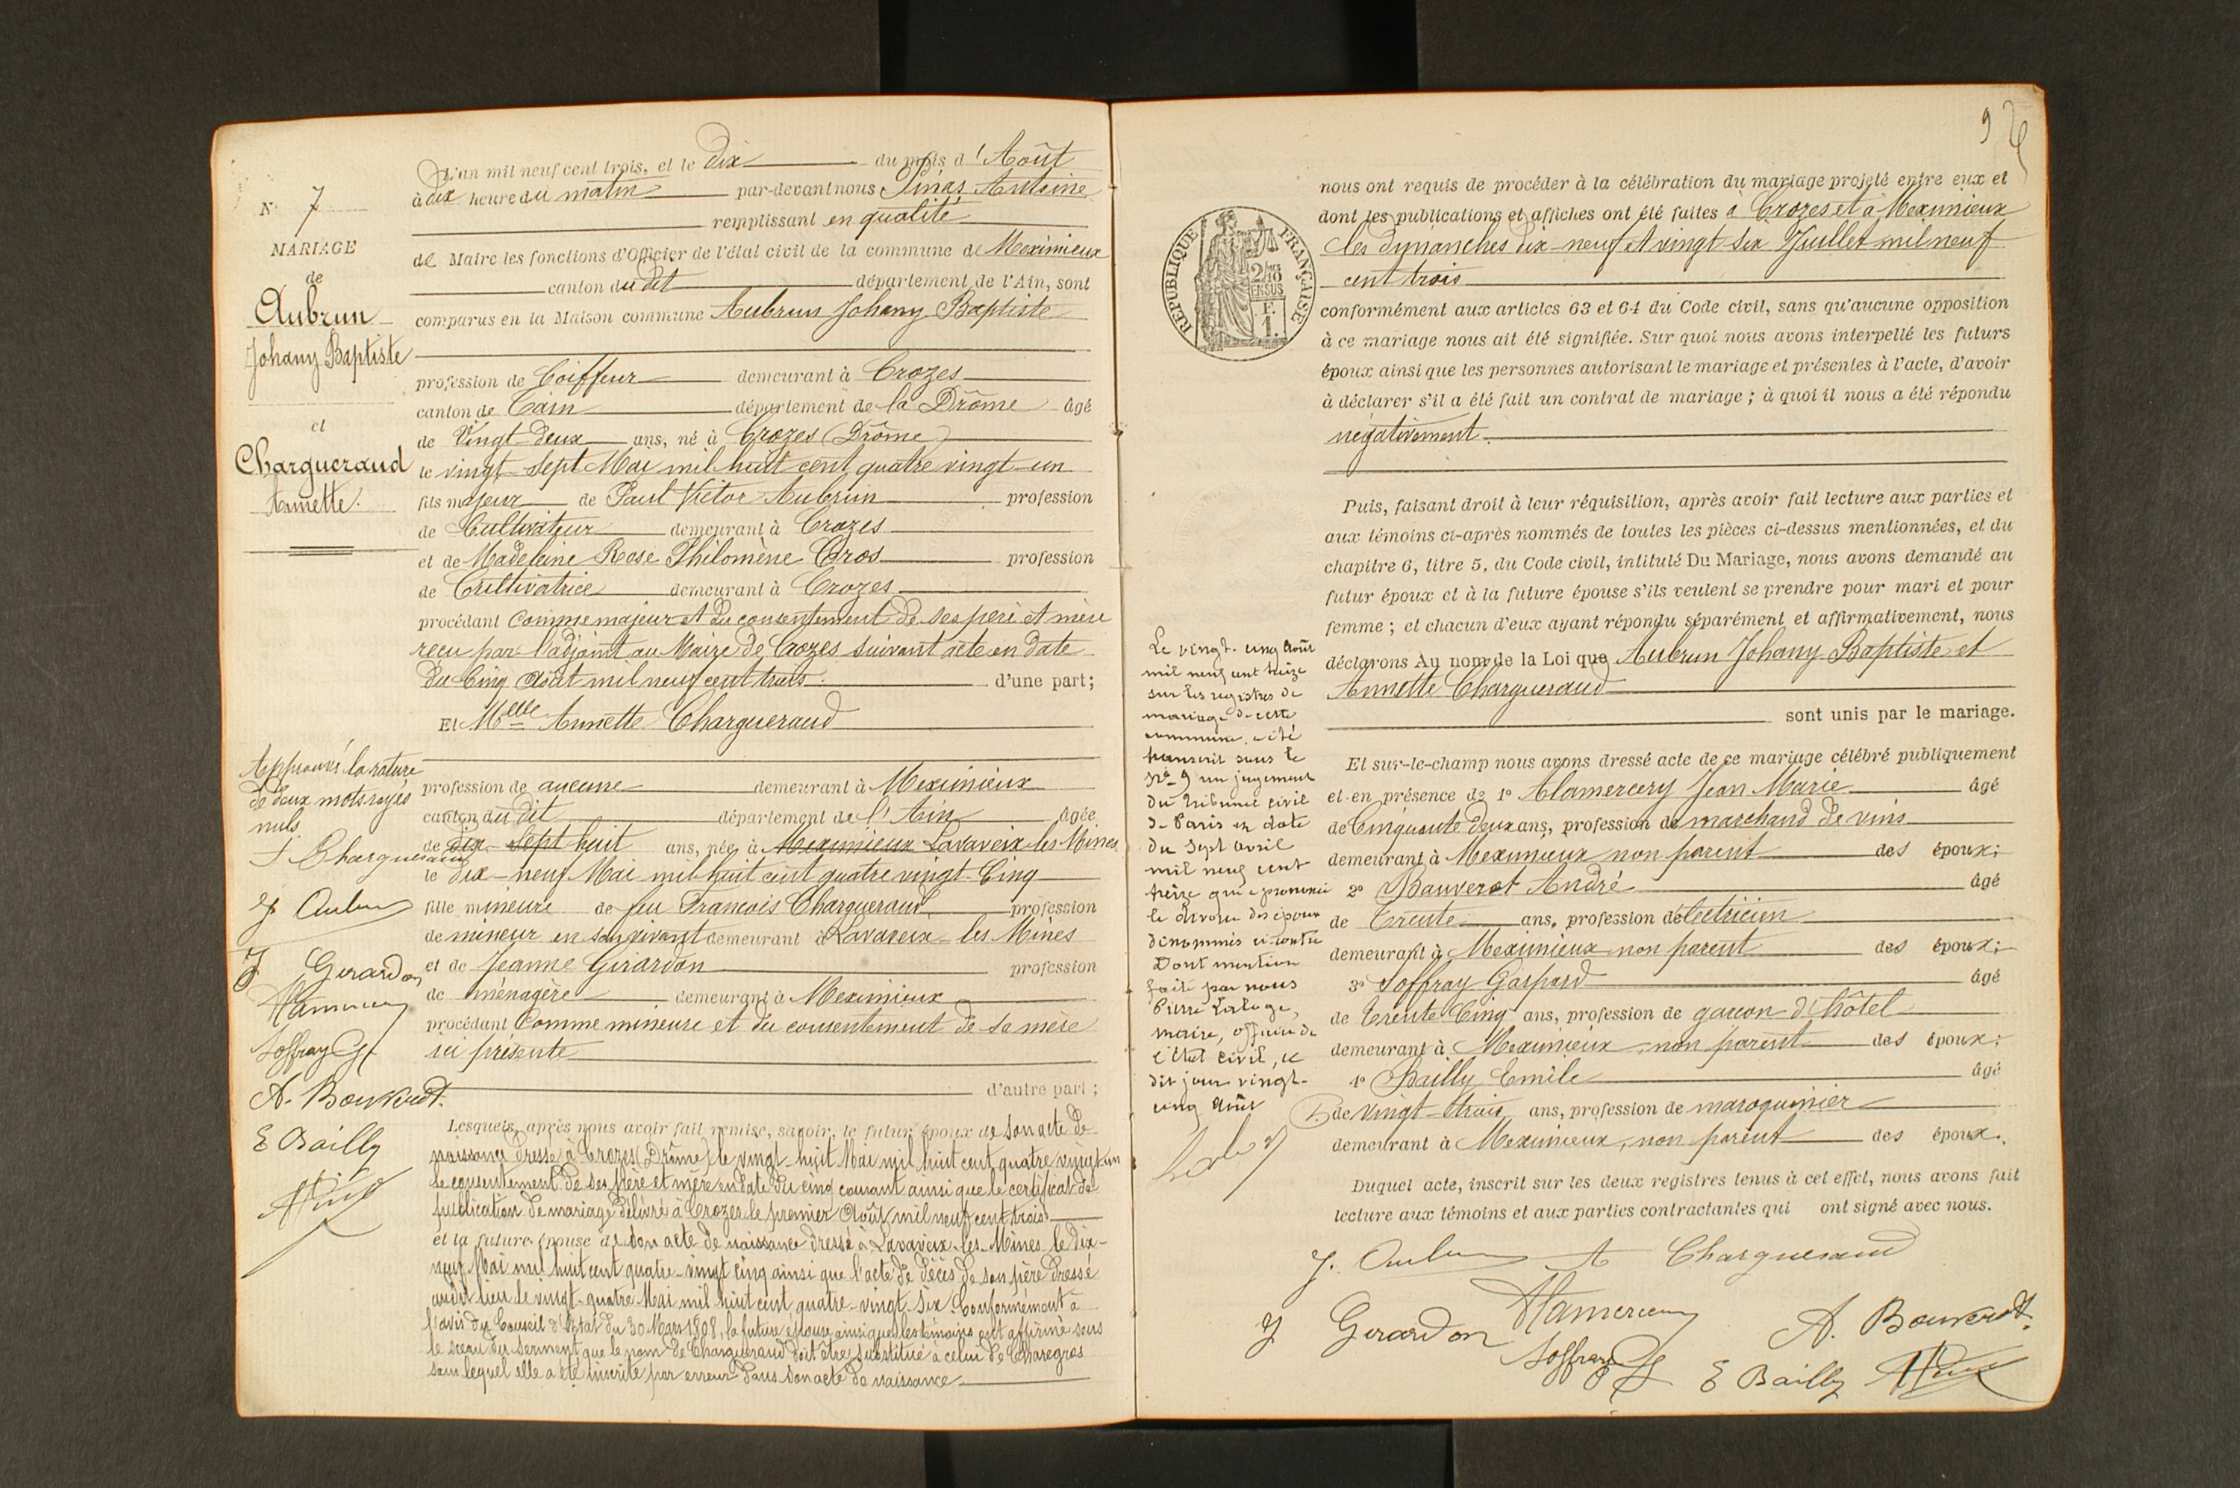 N° 7
MARIAGE
de
Aubrun
Johany Baptiste
et
Chargueraud
Annette.
L'an mil neuf cent trois, et le dix du mois d'Août
à dix heure du matin par-devant nous Pinas Antoine
remplissant en qualité
de Maire les fonctions d'Officier de l'état civil de la commune de Meximieux
canton du dit département de l'Ain, sont
comparus en la Maison commune Aubrun Johany Baptiste
profession de Coiffeur demeurant à Crozes
canton de Tain département de la Drôme âgé
de Vingt-deux ans, né à Crozes (Drôme)
le vingt-sept Mai mil huit cent quatre vingt-un
fils majeur de Paul Victor Aubrun profession
de Cultivateur demeurant à Crozes
et de Madeleine Rose Philomène Cros profession
de Cultivatrice demeurant à Crozes
procédant comme majeur et du consentement de ses père et mère
reçu par l'adjoint au Maire de Crozes suivant acte en date
du Cinq Août mil neuf cent trois. d'une part;
Et Melle Annette Chargueraud
profession de aucune demeurant à Meximieux
canton du dit département de l'Ain âgée
de dix-sept huit ans, née à Meximieux Lavaveix les Mines
le dix-neuf Mai mil huit cent quatre vingt-Cinq
fille mineure de feu François Chargueraud profession
de mineur en son vivant demeurant à Lavaveix-les Mines
et de Jeanne Girardon profession
de ménagère demeurant à Meximieux
procédant Comme mineure et du consentement de sa mère
ici présente
d'autre part;
Approuvé la rature
de deux mots rayés
nuls.
Chargueraud
J Aubrun
J Girardon
Soffray G
A. Bouverot.
E Bailly
Lesquels, après nous avoir fait remise, savoir, le futur époux de son acte de
naissance dressé à Crozes (Drôme) le vingt-huit Mai mil huit cent quatre vingt-un
le consentement de ses père et mère en date du cinq courant ainsi que le certificat de
publication de mariage délivré à Crozes le premier Août mil neuf cent trois
et la future épouse de son acte de naissance dressé à Lavaveix-les-Mines le dix-
neuf Mai mil huit cent quatre-vingt cinq ainsi que l'acte de décès de son père dressé
audit lieu le vingt-quatre Mai mil huit cent quatre-vingt-six. Conformément à
l'avis du Conseil d'Etat du 30 Mars 1808, la future épouse ainsi que les témoins ont affirmé sous
le sceau du serment que le nom de Chargueraud doit être substitué à celui de Charegros
sous lequel elle a été inscrite par erreur dans son acte de naissance
9
REPUBLIQUE FRANÇAISE
2/10 EN SUS
F. 1.
nous ont requis de procéder à la célébration du mariage projeté entre eux et
dont les publications et affiches ont été faites à Crozes et à Meximieux
les dimanches dix-neuf et vingt six Juillet mil neuf
cent trois
conformément aux articles 63 et 64 du Code civil, sans qu'aucune opposition
à ce mariage nous ait été signifiée. Sur quoi nous avons interpellé les futurs
époux ainsi que les personnes autorisant le mariage et présentes à l'acte, d'avoir
à déclarer s'il a été fait un contrat de mariage; à quoi il nous a été répondu
négativement.
Puis, faisant droit à leur réquisition, après avoir fait lecture aux parties et
aux témoins ci-après nommés de toutes les pièces ci-dessus mentionnées, et du
chapitre 6, titre 5, du Code civil, intitulé Du Mariage, nous avons demandé au
futur époux et à la future épouse s'ils veulent se prendre pour mari et pour
femme; et chacun d'eux ayant répondu séparément et affirmativement, nous
déclarons Au nom de la Loi que Aubrun Johany Baptiste et
Annette Chargueraud
sont unis par le mariage.
Et sur-le-champ nous avons dressé acte de ce mariage célébré publiquement
et en présence de 1° Alamercery Jean Marie âgé
de Cinquante deux ans, profession de marchand de vins
demeurant à Meximieux non parent des époux;
2° Bouverot André âgé
de Trente ans, profession d'électricien
demeurant à Meximieux non parent des époux;
3° Soffray Gaspard âgé
de Trente Cinq ans, profession de garçon d'hôtel
demeurant à Meximieux, non parent des époux;
4° Bailly Emile âgé
de vingt-trois ans, profession de maroquinier
demeurant à Meximieux, non parent des époux.
Duquel acte, inscrit sur les deux registres tenus à cet effet, nous avons fait
lecture aux témoins et aux parties contractantes qui ont signé avec nous.
J. Aubrun A Chargueraud
J Girardon Alamercery A. Bouverot.
Soffray G E Bailly
Le vingt-cinq Août
mil neuf cent treize
sur les registres de
mariage de cette
commune, a été
transcrit sous le
N° 9 un jugement
du tribunal civil
de Paris en date
du sept avril
mil neuf cent
treize qui a prononcé
le divorce des époux
dénommés ci-contre
Dont mention
fait par nous
Pierre
maire, officier de
l'état civil, ce
dit jour vingt-
cinq Août